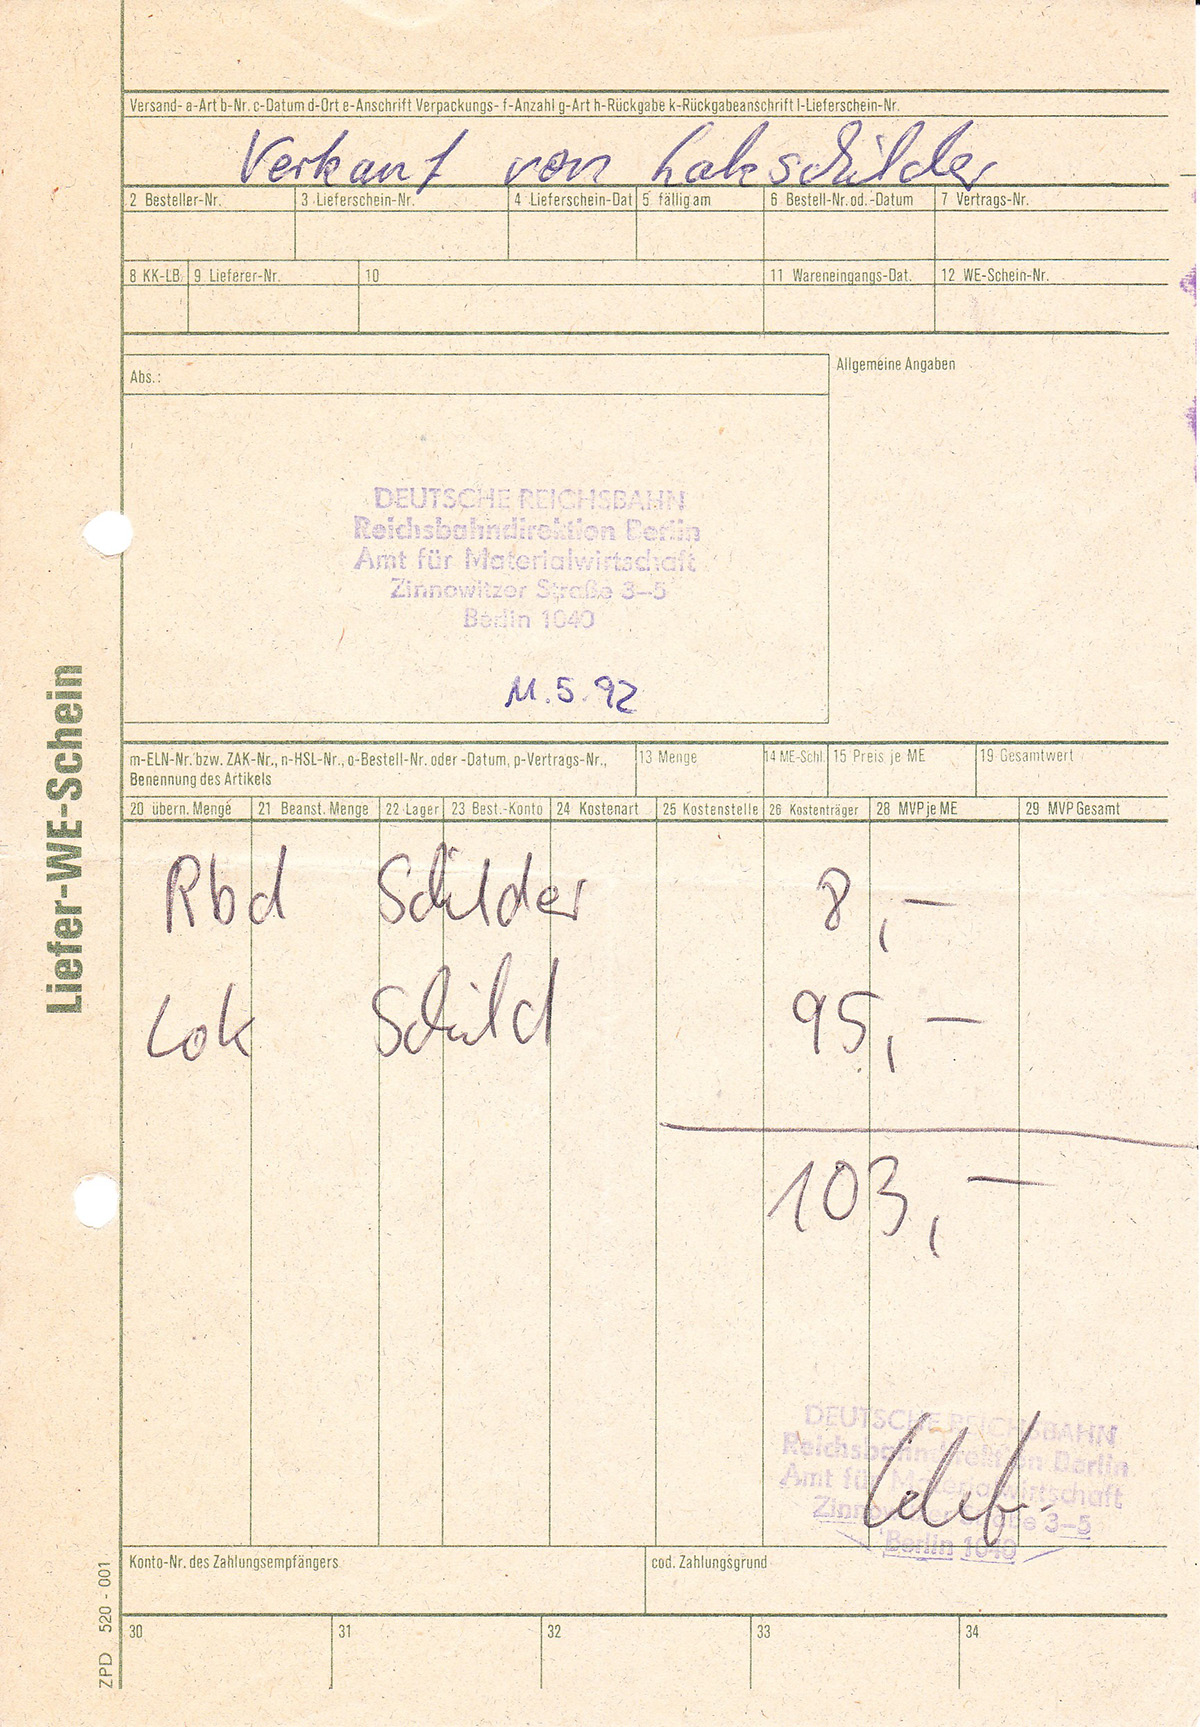 Versand- a-Art b-Nr. c-Datum d-Ort e-Anschrift Verpackungs- f-Anzahl g-Art h-Rückgabe k-Rückgabeanschrift l-Lieferschein-Nr.
Verkauf von Lokschilder
2 Besteller-Nr. 3 Lieferschein-Nr. 4 Lieferschein-Dat 5 fällig am 6 Bestell-Nr.od.-Datum 7 Vertrags-Nr.
8 KK-LB 9 Lieferer-Nr. 10 11 Wareneingangs-Dat. 12 WE-Schein-Nr.
Abs.:
Allgemeine Angaben
DEUTSCHE REICHSBAHN
Reichsbahndirektion Berlin
Amt für Materialwirtschaft
Zinnowitzer Straße 3–5
Berlin 1040
11.5.92
Liefer-WE-Schein
m-ELN-Nr. bzw. ZAK-Nr., n-HSL-Nr., o-Bestell-Nr. oder -Datum, p-Vertrags-Nr., 13 Menge 14 ME-Schl. 15 Preis je ME 19 Gesamtwert
Benennung des Artikels
20 übern. Menge 21 Beanst. Menge 22 Lager 23 Best.-Konto 24 Kostenart 25 Kostenstelle 26 Kostenträger 28 MVP je ME 29 MVP Gesamt
Rbd Schilder 8,—
Lok Schild 95,—
103,—
DEUTSCHE REICHSBAHN
Reichsbahndirektion Berlin
Amt für Materialwirtschaft
Zinnowitzer Straße 3–5
Berlin 1040
Konto-Nr. des Zahlungsempfängers cod. Zahlungsgrund
30 31 32 33 34
ZPD 520 - 001